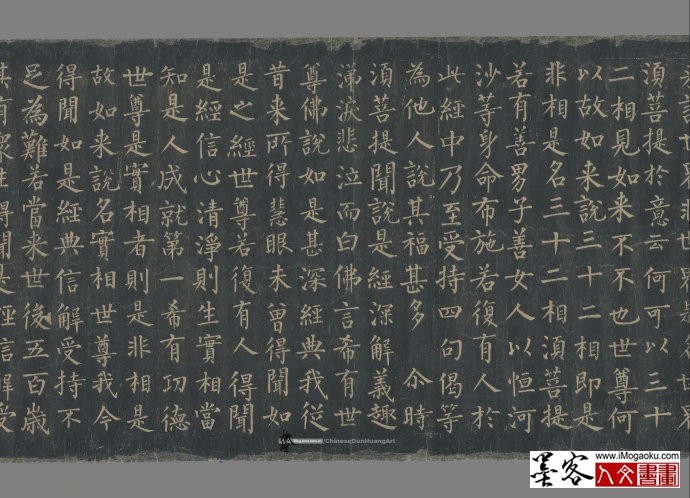 須菩提於意云何可以三十
二相見如来不不也世尊何
以故如来說三十二相即是
非相是名三十二相須菩提
若有善男子善女人以恒河
沙等身命布施若復有人於
此經中乃至受持四句偈等
為他人說其福甚多 尒時
須菩提聞說是經深解義趣
涕淚悲泣而白佛言希有世
尊佛說如是甚深經典我從
昔来所得慧眼未曾得聞如
是之經世尊若復有人得聞
是經信心清淨則生實相當
知是人成就第一希有功德
世尊是實相者則是非相是
故如来說名實相世尊我今
得聞如是經典信解受持不
足為難若當来世後五百歲
其有衆生得聞是經信解受
/ChineseDunHuangArt
www.iMogaoku.com
墨客
人文書畫